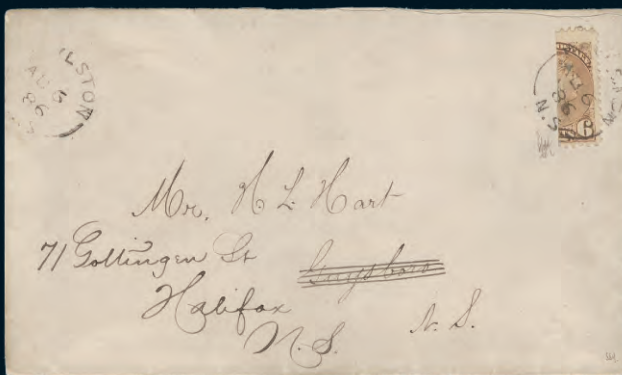 LSTON
AU 6
86
6
86
N.S.
6
Mrs. H. L. Hart
71 Gottingen St Guysboro
Halifax N.S.
N.S.